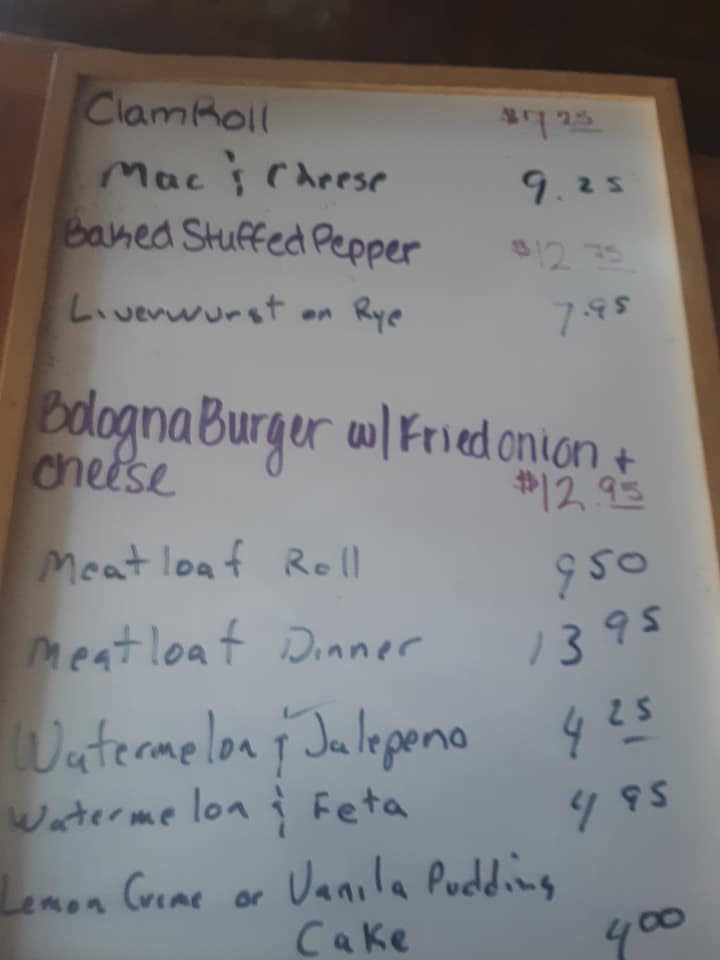 Clam Roll $7 25
Mac & Cheese 9.25
Baked Stuffed Pepper $12 75
Liverwurst on Rye 7.95
Bologna Burger w/ Fried onion +
cheese $12.95
Meatloaf Roll 9 50
Meatloaf Dinner 13 95
Watermelon & Jalepeno 4 25
Watermelon & Feta 4 95
Lemon Creme or Vanila Pudding
Cake 4 00